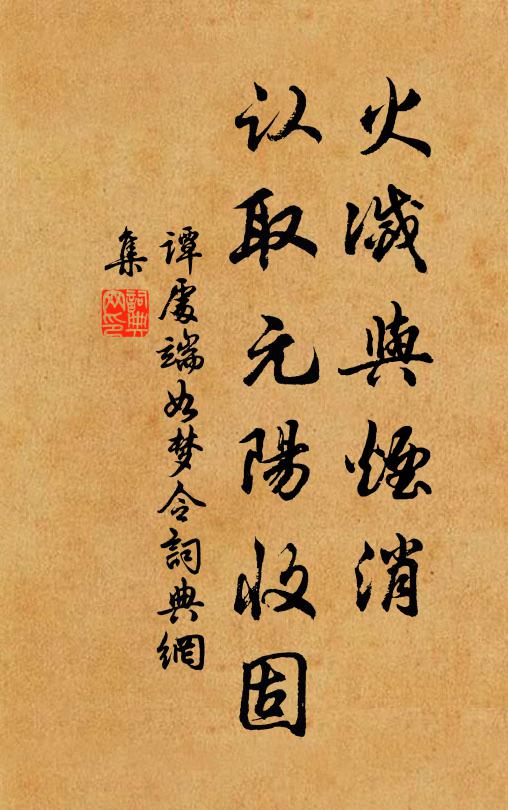 火滅與煙消
认取元陽收固
谭處端如梦令詞典網
集
詞典网印